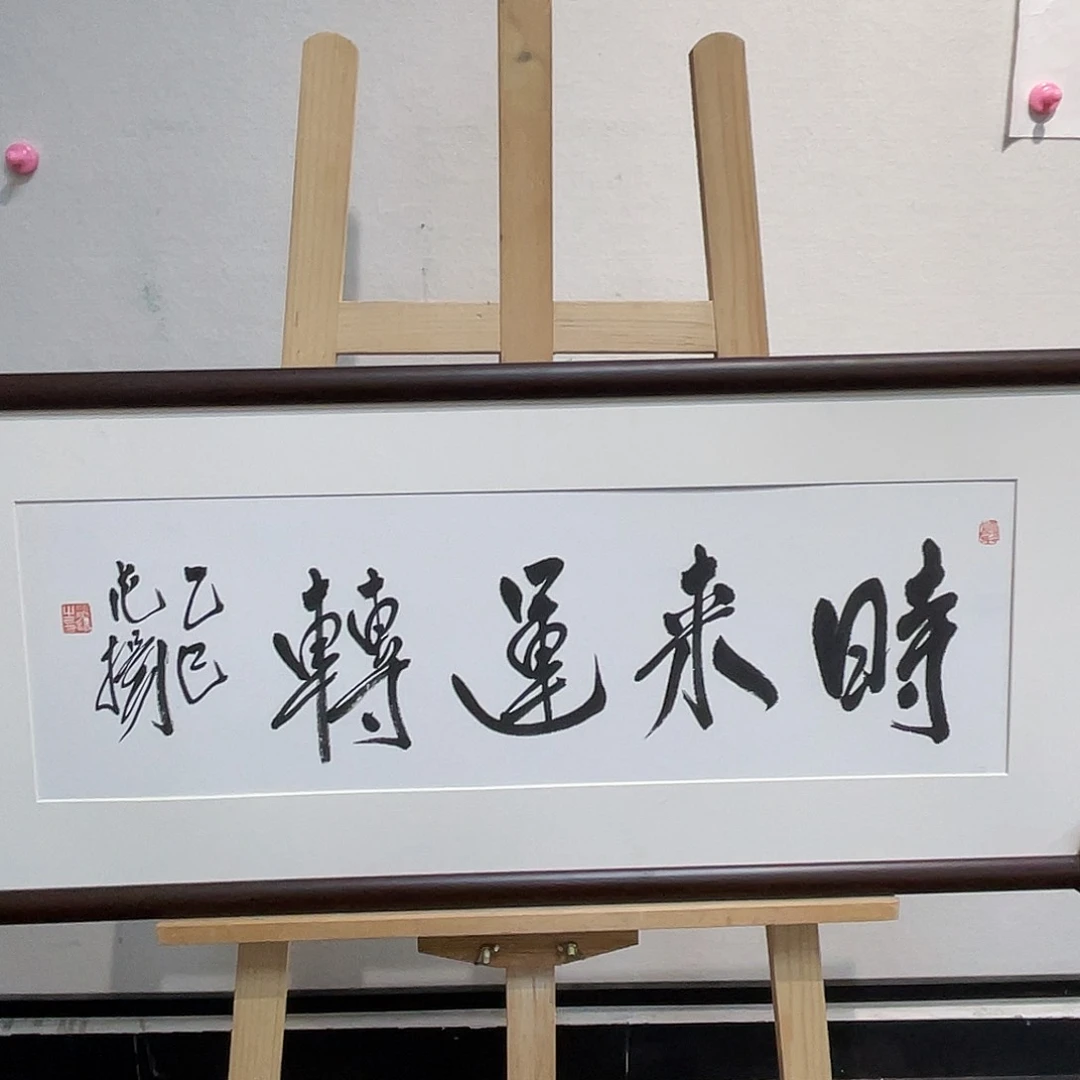 時來運轉
乙巳